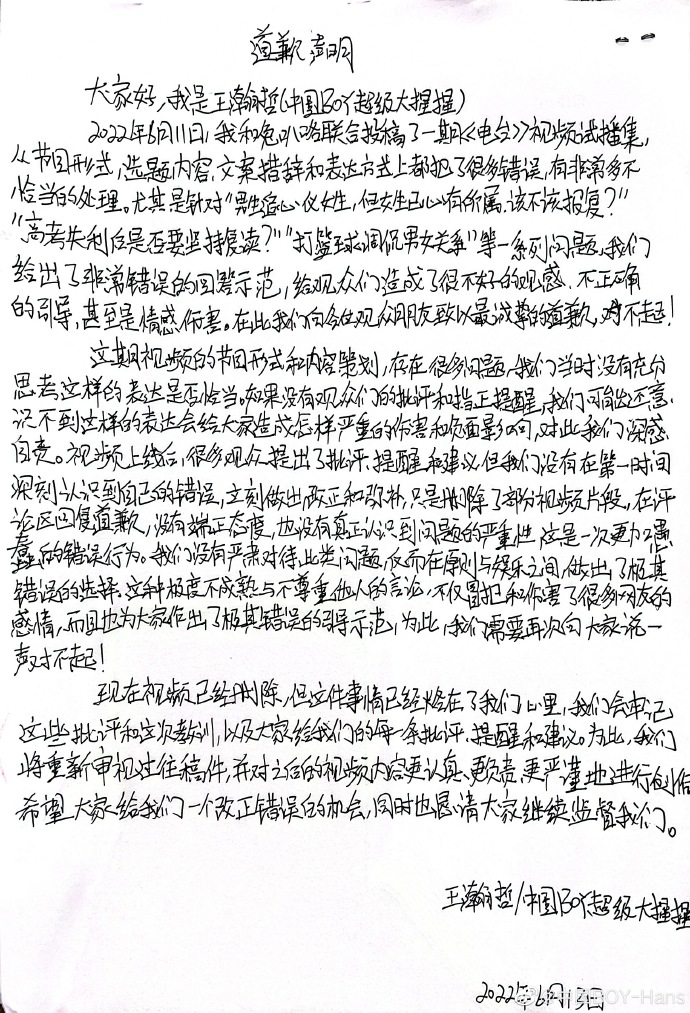 道歉声明
大家好，我是王瀚哲(中国BOY超级大猩猩)
2022年6月11日，我和兔叭咯联合投稿了一期《电台》视频试播集，
从节目形式，选题内容，文案措辞和表达方式上都犯了很多错误，有非常多不
恰当的处理。尤其是针对“男生追心仪女生，但女生已心有所属，该不该报复？”
“高考失利后是否要坚持复读？”“打篮球调侃男女关系”等一系列问题，我们
给出了非常错误的回答示范，给观众们造成了很不好的观感、不正确
的引导，甚至是情感伤害。在此我们向各位观众朋友致以最诚挚的道歉，对不起！
这期视频的节目形式和内容策划，存在很多问题，我们当时没有充分
思考这样的表达是否恰当，如果没有观众们的批评和指正提醒，我们可能还意
识不到这样的表达会给大家造成怎样严重的伤害和负面影响，对此我们深感
自责。视频上线后，很多观众提出了批评、提醒和建议，但我们没有在第一时间
深刻认识到自己的错误，立刻做出改正和弥补，只是删除了部分视频片段，在评
论区回复道歉，没有端正态度，也没有真正认识到问题的严重性，这是一次更加愚
蠢的错误行为。我们没有严肃对待此类问题，反而在原则与娱乐之间，做出了极其
错误的选择。这种极度不成熟与不尊重他人的言论，不仅冒犯和伤害了很多网友的
感情，而且也为大家作出了极其错误的引导示范，为此，我们需要再次向大家说一
声对不起！
现在视频已经删除，但这件事情已经烙在了我们心里，我们会牢记
这些批评和这次教训，以及大家给我们的每一条批评、提醒和建议。为此，我们
将重新审视过往稿件，并对之后的视频内容更认真、更负责、更严谨地进行创作
希望大家给我们一个改正错误的机会，同时也恳请大家继续监督我们。
王瀚哲/中国BOY超级大猩猩
2022年6月13日
@中国BOY-Hans